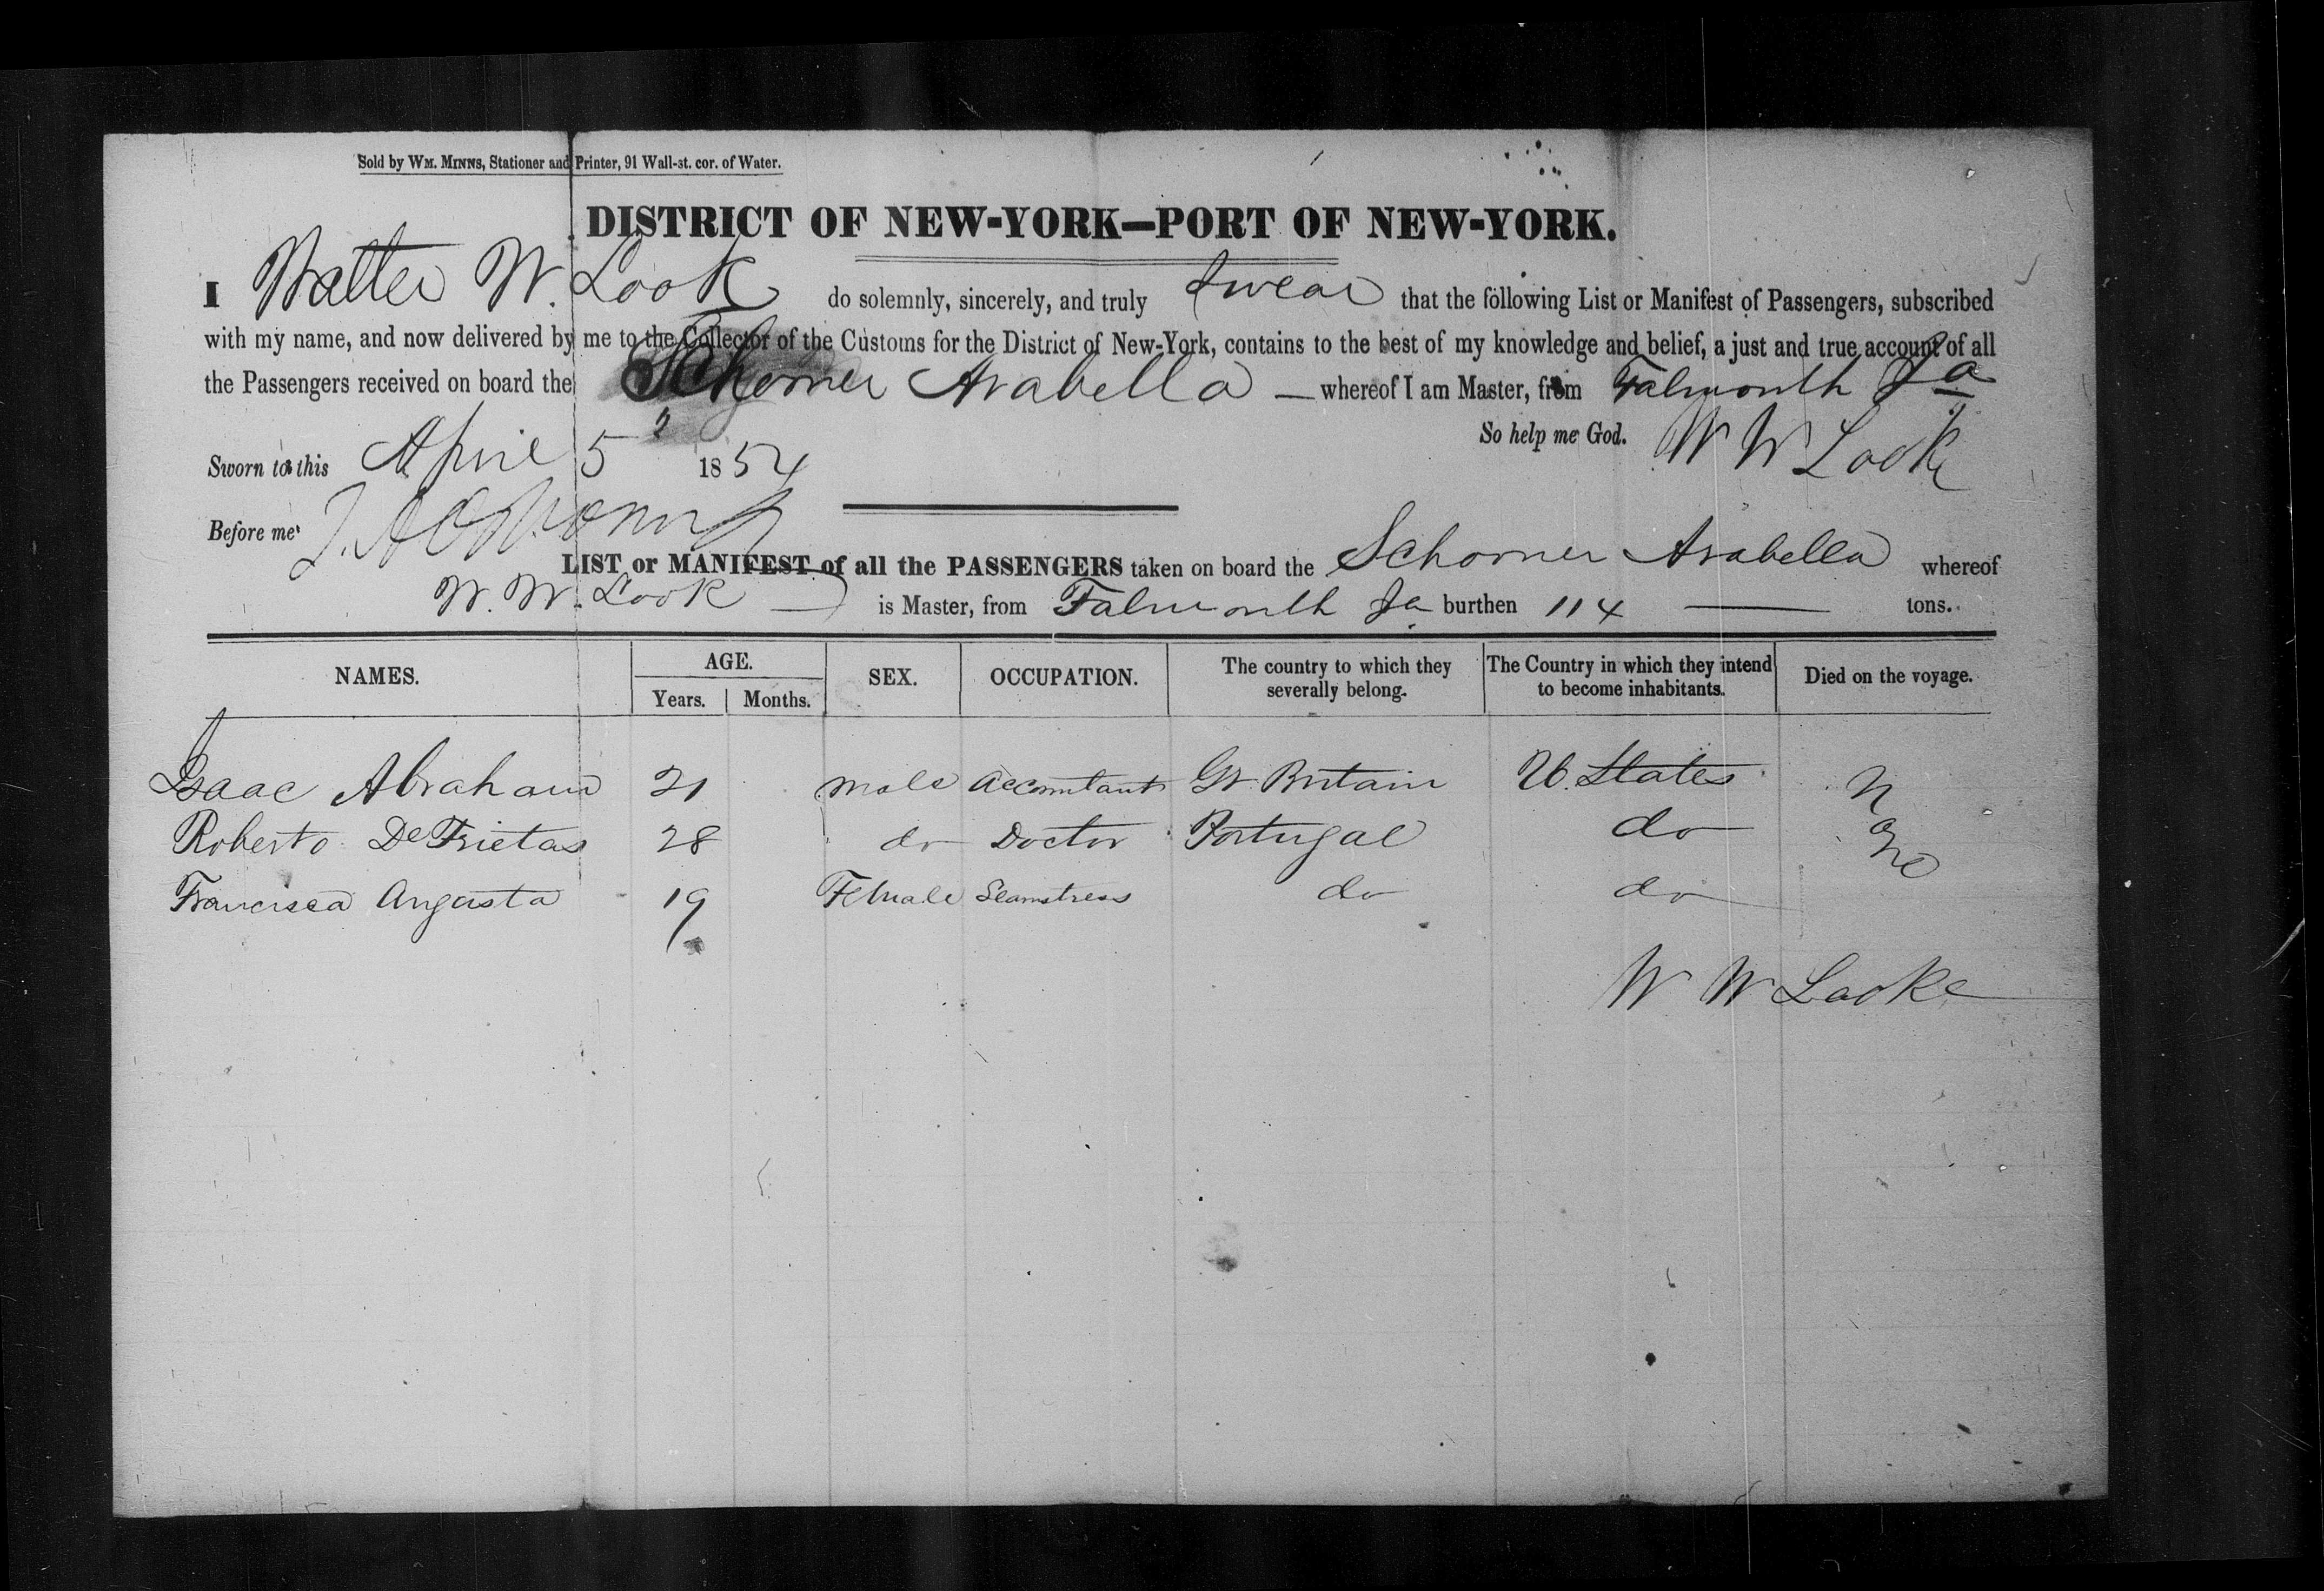 Sold by WM. MINNS, Stationer and Printer, 91 Wall-st. cor. of Water.
DISTRICT OF NEW-YORK—PORT OF NEW-YORK.
I Walter W. Look do solemnly, sincerely, and truly swear that the following List or Manifest of Passengers, subscribed
with my name, and now delivered by me to the Collector of the Customs for the District of New-York, contains to the best of my knowledge and belief, a just and true account of all
the Passengers received on board the Schooner Arabella — whereof I am Master, from Falmouth Ja
So help me God. W W Look
Sworn to this April 5 1854
Before me
LIST or MANIFEST of all the PASSENGERS taken on board the Schooner Arabella whereof
W. W. Look is Master, from Falmouth Ja burthen 114 tons.
NAMES. AGE. Years. Months. SEX. OCCUPATION. The country to which they severally belong. The Country in which they intend to become inhabitants. Died on the voyage.
Isaac Abraham 21 male Accountant Gt Britain U. States None
Roberto De Frietas 28 do Doctor Portugal do
Francisca Augusta 19 Female Seamstress do do
W W Looke